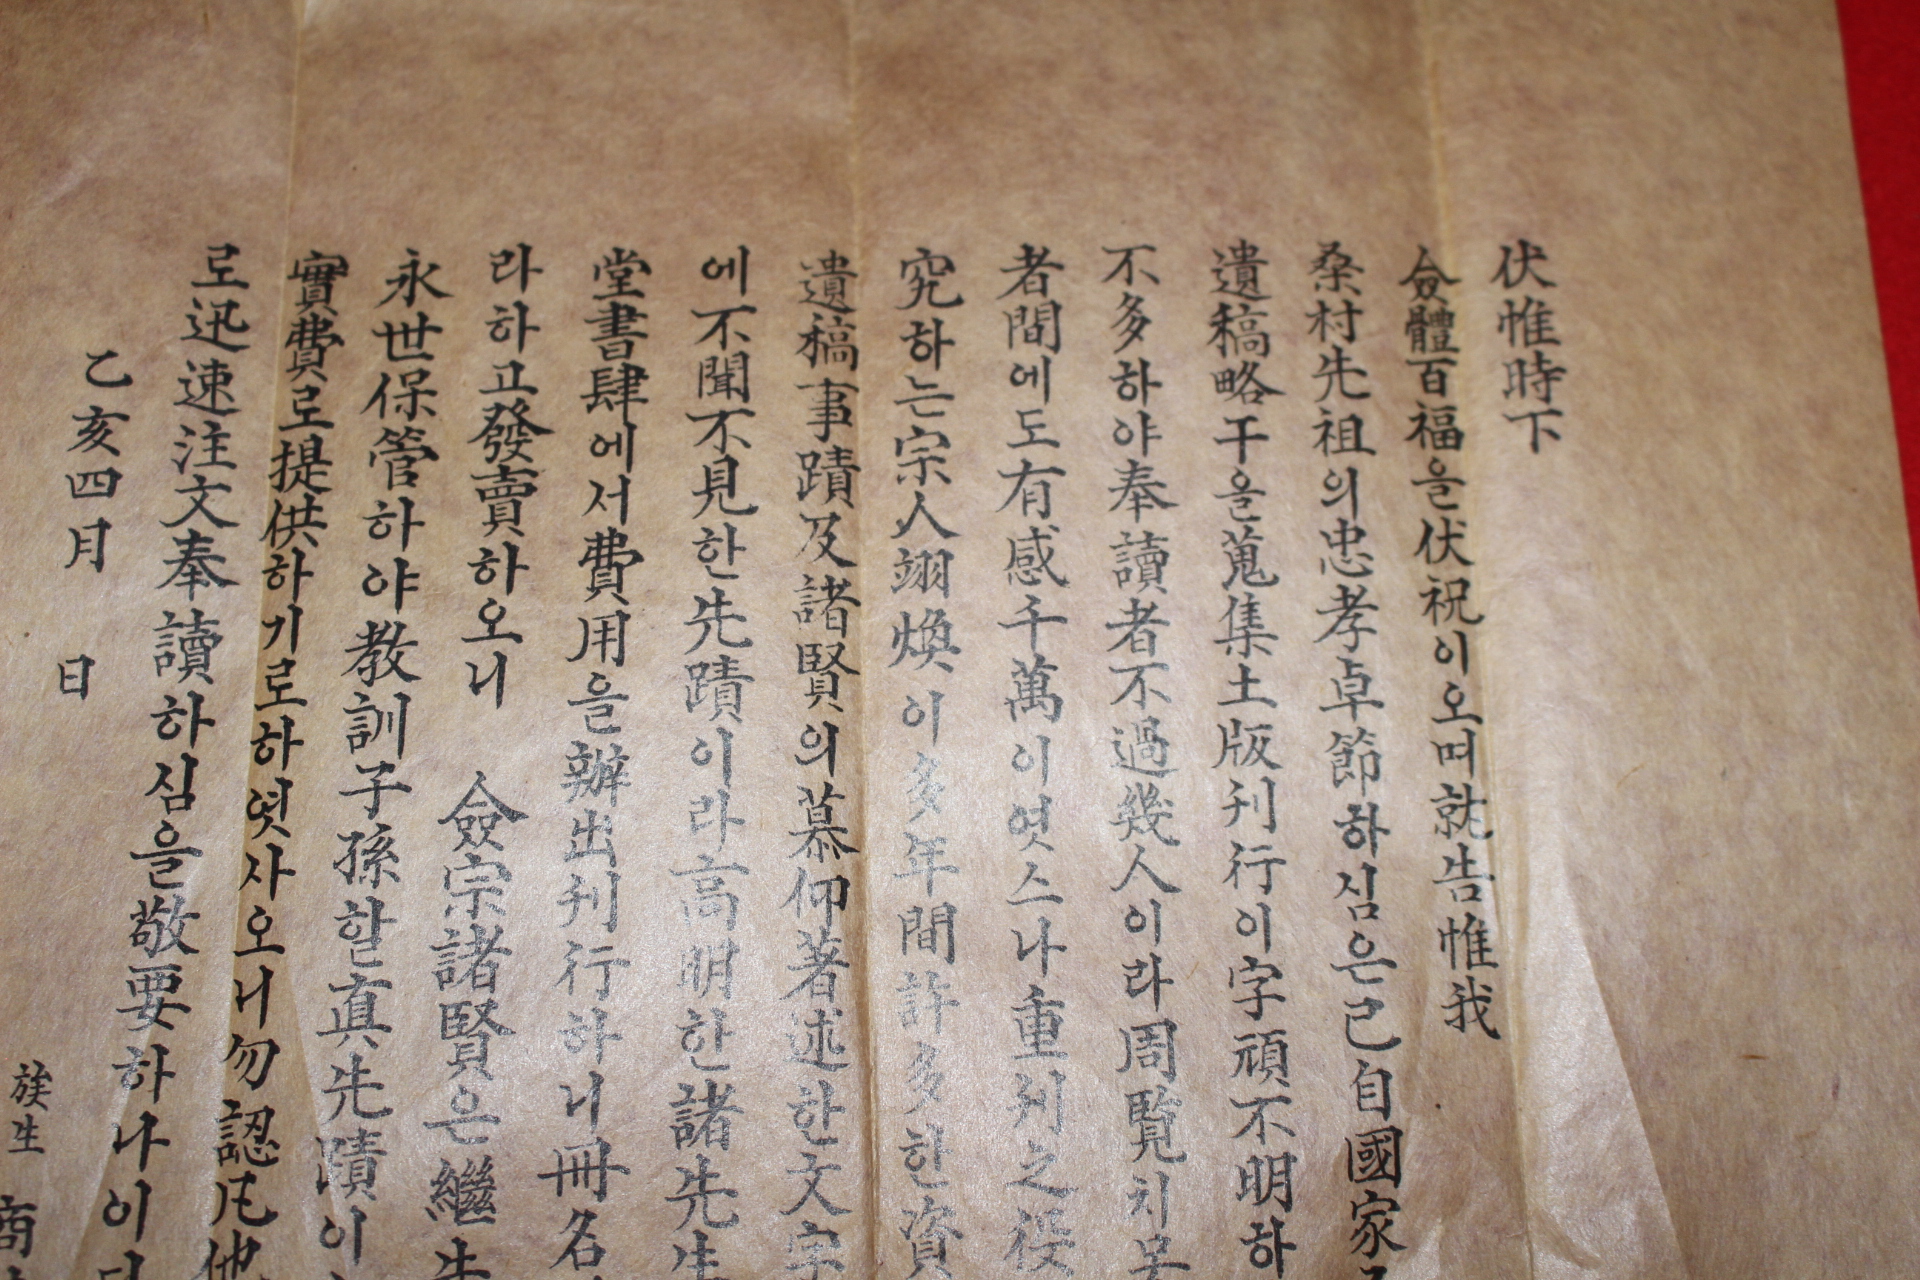 伏惟時下
僉體百福을伏祝이오며就告惟我
桑村先祖의忠孝卓節하심은已自國家
遺稿略干을蒐集土版刊行이字頑不明하
不多하야奉讀者不過幾人이라周覽치못
者間에도有感千萬이엿스나重刊之役
究하는宗人翊煥이多年間許多한資
遺稿事蹟及諸賢의慕仰著述한文字
에不聞不見한先蹟이라高明한諸先生
堂書肆에서費用을辦出刊行하니冊名
라하고發賣하오니 僉宗諸賢은繼先
永世保管하야敎訓子孫할眞先蹟이
實費로提供하기로하엿사오니勿認凡他
로迅速注文奉讀하심을敬要하나이다
乙亥四月 日
族生 商